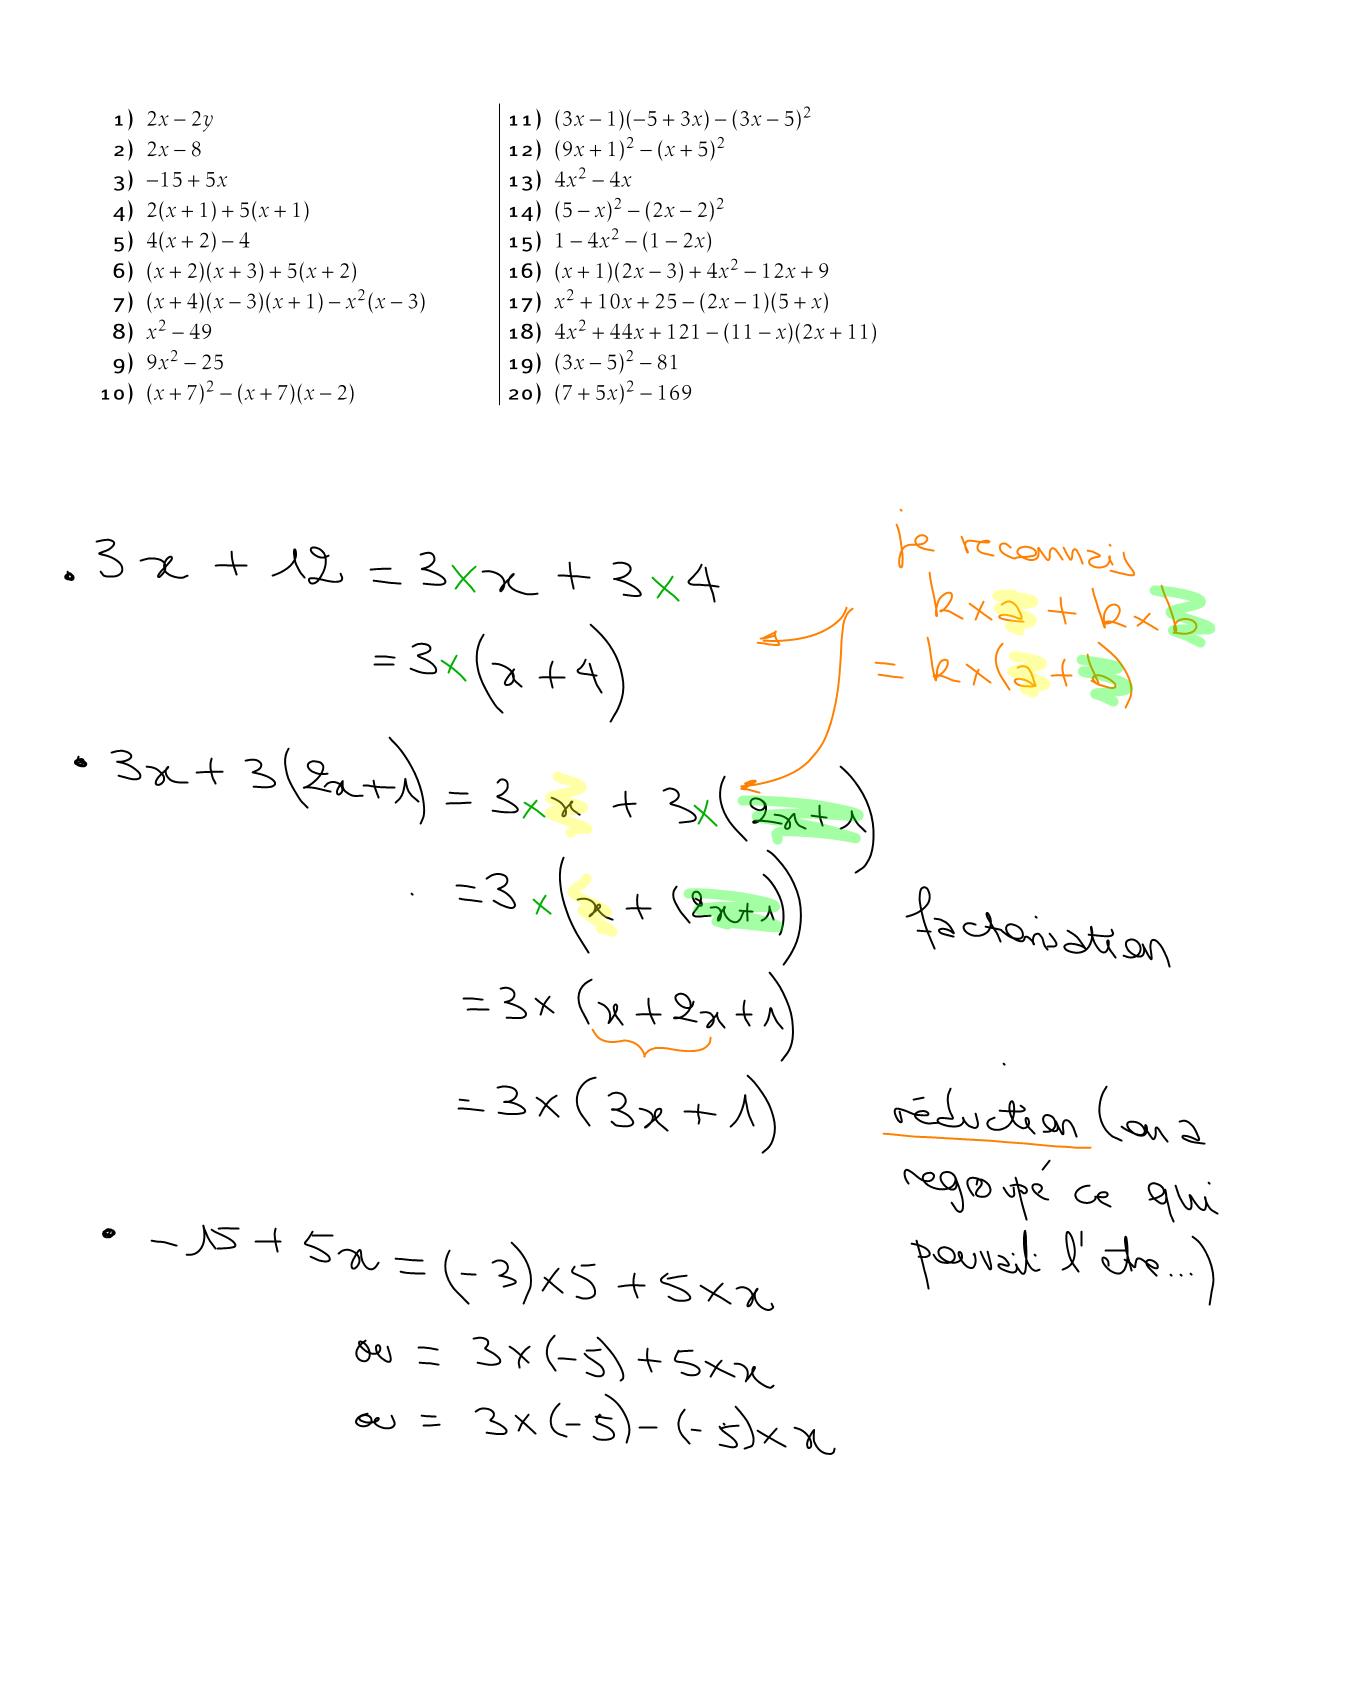 1) 2x − 2y
2) 2x − 8
3) −15 + 5x
4) 2(x + 1) + 5(x + 1)
5) 4(x + 2) − 4
6) (x + 2)(x + 3) + 5(x + 2)
7) (x + 4)(x − 3)(x + 1) − x²(x − 3)
8) x² − 49
9) 9x² − 25
10) (x + 7)² − (x + 7)(x − 2)
11) (3x − 1)(−5 + 3x) − (3x − 5)²
12) (9x + 1)² − (x + 5)²
13) 4x² − 4x
14) (5 − x)² − (2x − 2)²
15) 1 − 4x² − (1 − 2x)
16) (x + 1)(2x − 3) + 4x² − 12x + 9
17) x² + 10x + 25 − (2x − 1)(5 + x)
18) 4x² + 44x + 121 − (11 − x)(2x + 11)
19) (3x − 5)² − 81
20) (7 + 5x)² − 169
• 3x + 12 = 3 × x + 3 × 4
= 3 × (x + 4)
je reconnais
k × a + k × b
= k × (a + b)
• 3x + 3(2x + 1) = 3 × x + 3 × (2x + 1)
= 3 × (x + (2x + 1))
factorisation
= 3 × (x + 2x + 1)
= 3 × (3x + 1)
réduction (on a
regroupé ce qui
pouvait l'être...)
• −15 + 5x = (−3) × 5 + 5 × x
ou = 3 × (−5) + 5 × x
ou = 3 × (−5) − (−5) × x